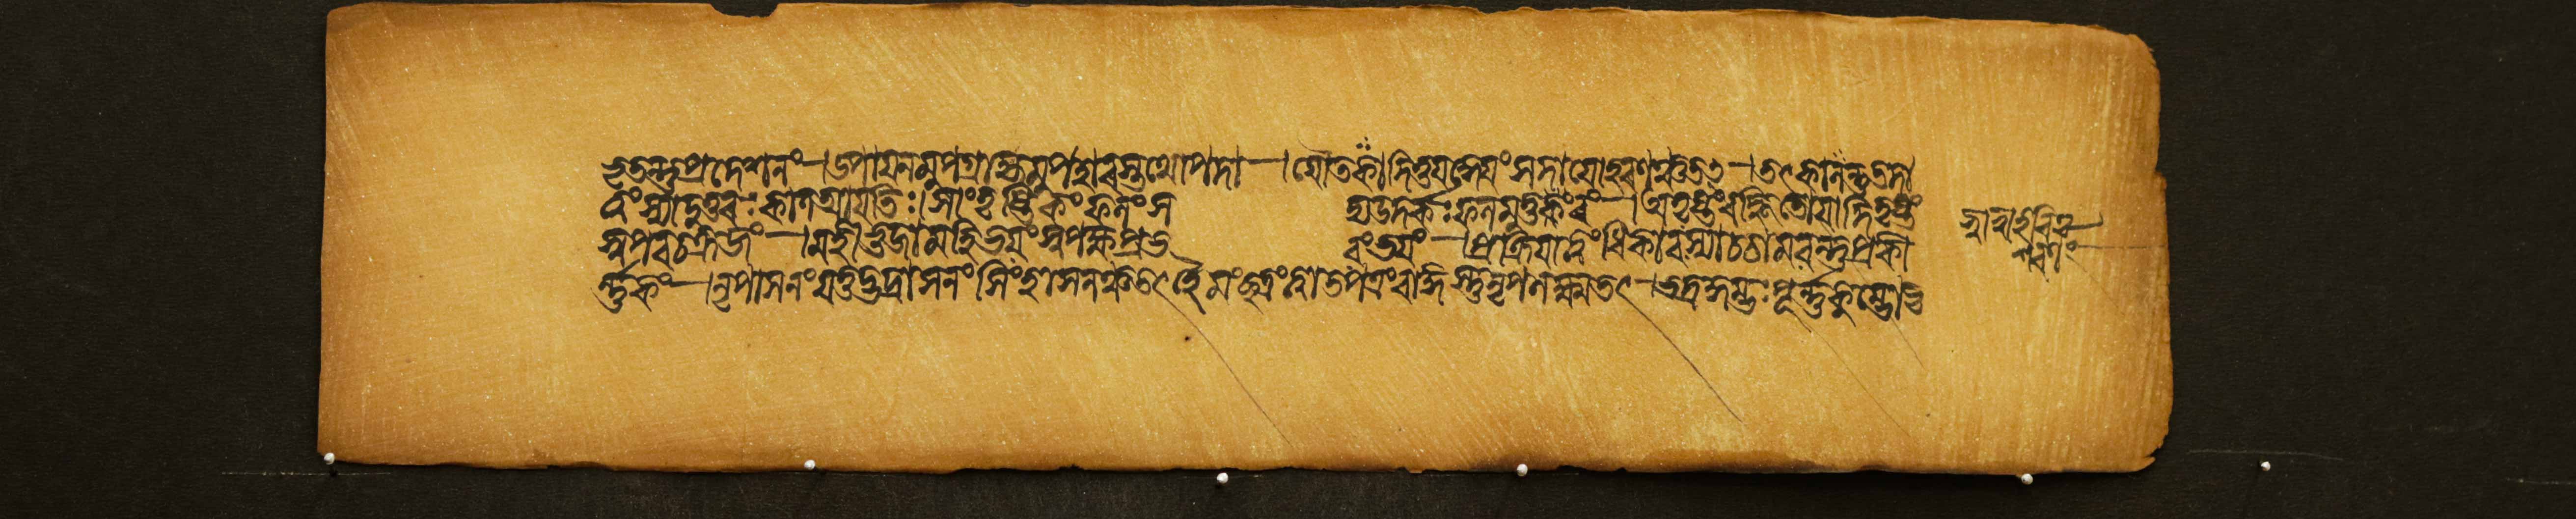 ভৃতন্তু প্রদেশনং—। উপায়নমুপগ্রাহ্যমুপহারস্তথোপদা—। যৌতকাদি তু যদ্দেয়ং সদায়োহরণঞ্চতৎ—। তৎকালস্তু তদা
ত্বং স্যাদুত্তরঃ কাল আয়তিঃ। সাংদৃষ্টিকং ফলং স দ্য উদর্কঃ ফলমুত্তরং—। অদৃষ্টং বহ্নিতোয়াদি দৃষ্টং
স্বপরচক্রজং—। মহীভুজামহিভয়ং স্বপক্ষপ্রভ বং ভয়ং—। প্রক্রিয়াত্বধিকারস্যাচ্চামরন্তু প্রকী
র্ণ্ণকং—। নৃপাসনং যত্তদ্ভদ্রাসনং সিংহাসনঞ্চতৎ হৈমং ছত্রং ত্বাতপত্রং রাজ্ঞস্তু নৃপলক্ষ্মতৎ—। ভদ্রকুম্ভঃ পূর্ণ্ণকুম্ভো ভৃ